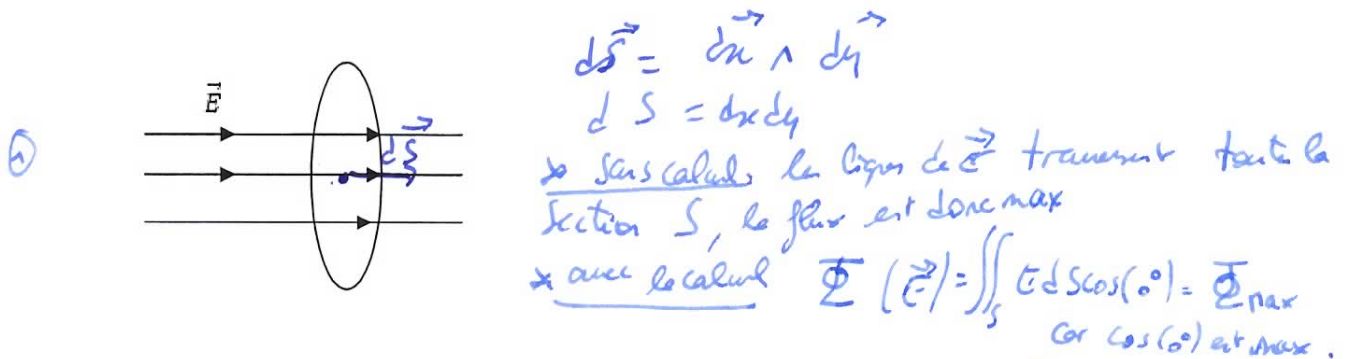 $\vec{dS} = \vec{dx} \wedge \vec{dy}$
$dS = dxdy$
$\vec{E}$
①
$\vec{dS}$
* sans calcul, les lignes de $\vec{E}$ traversent toute la
section S, le flux est donc max
* avec le calcul $\Phi(\vec{E}) = \iint_S E dS \cos(0°) = \Phi_{max}$
car cos(0°) est max.